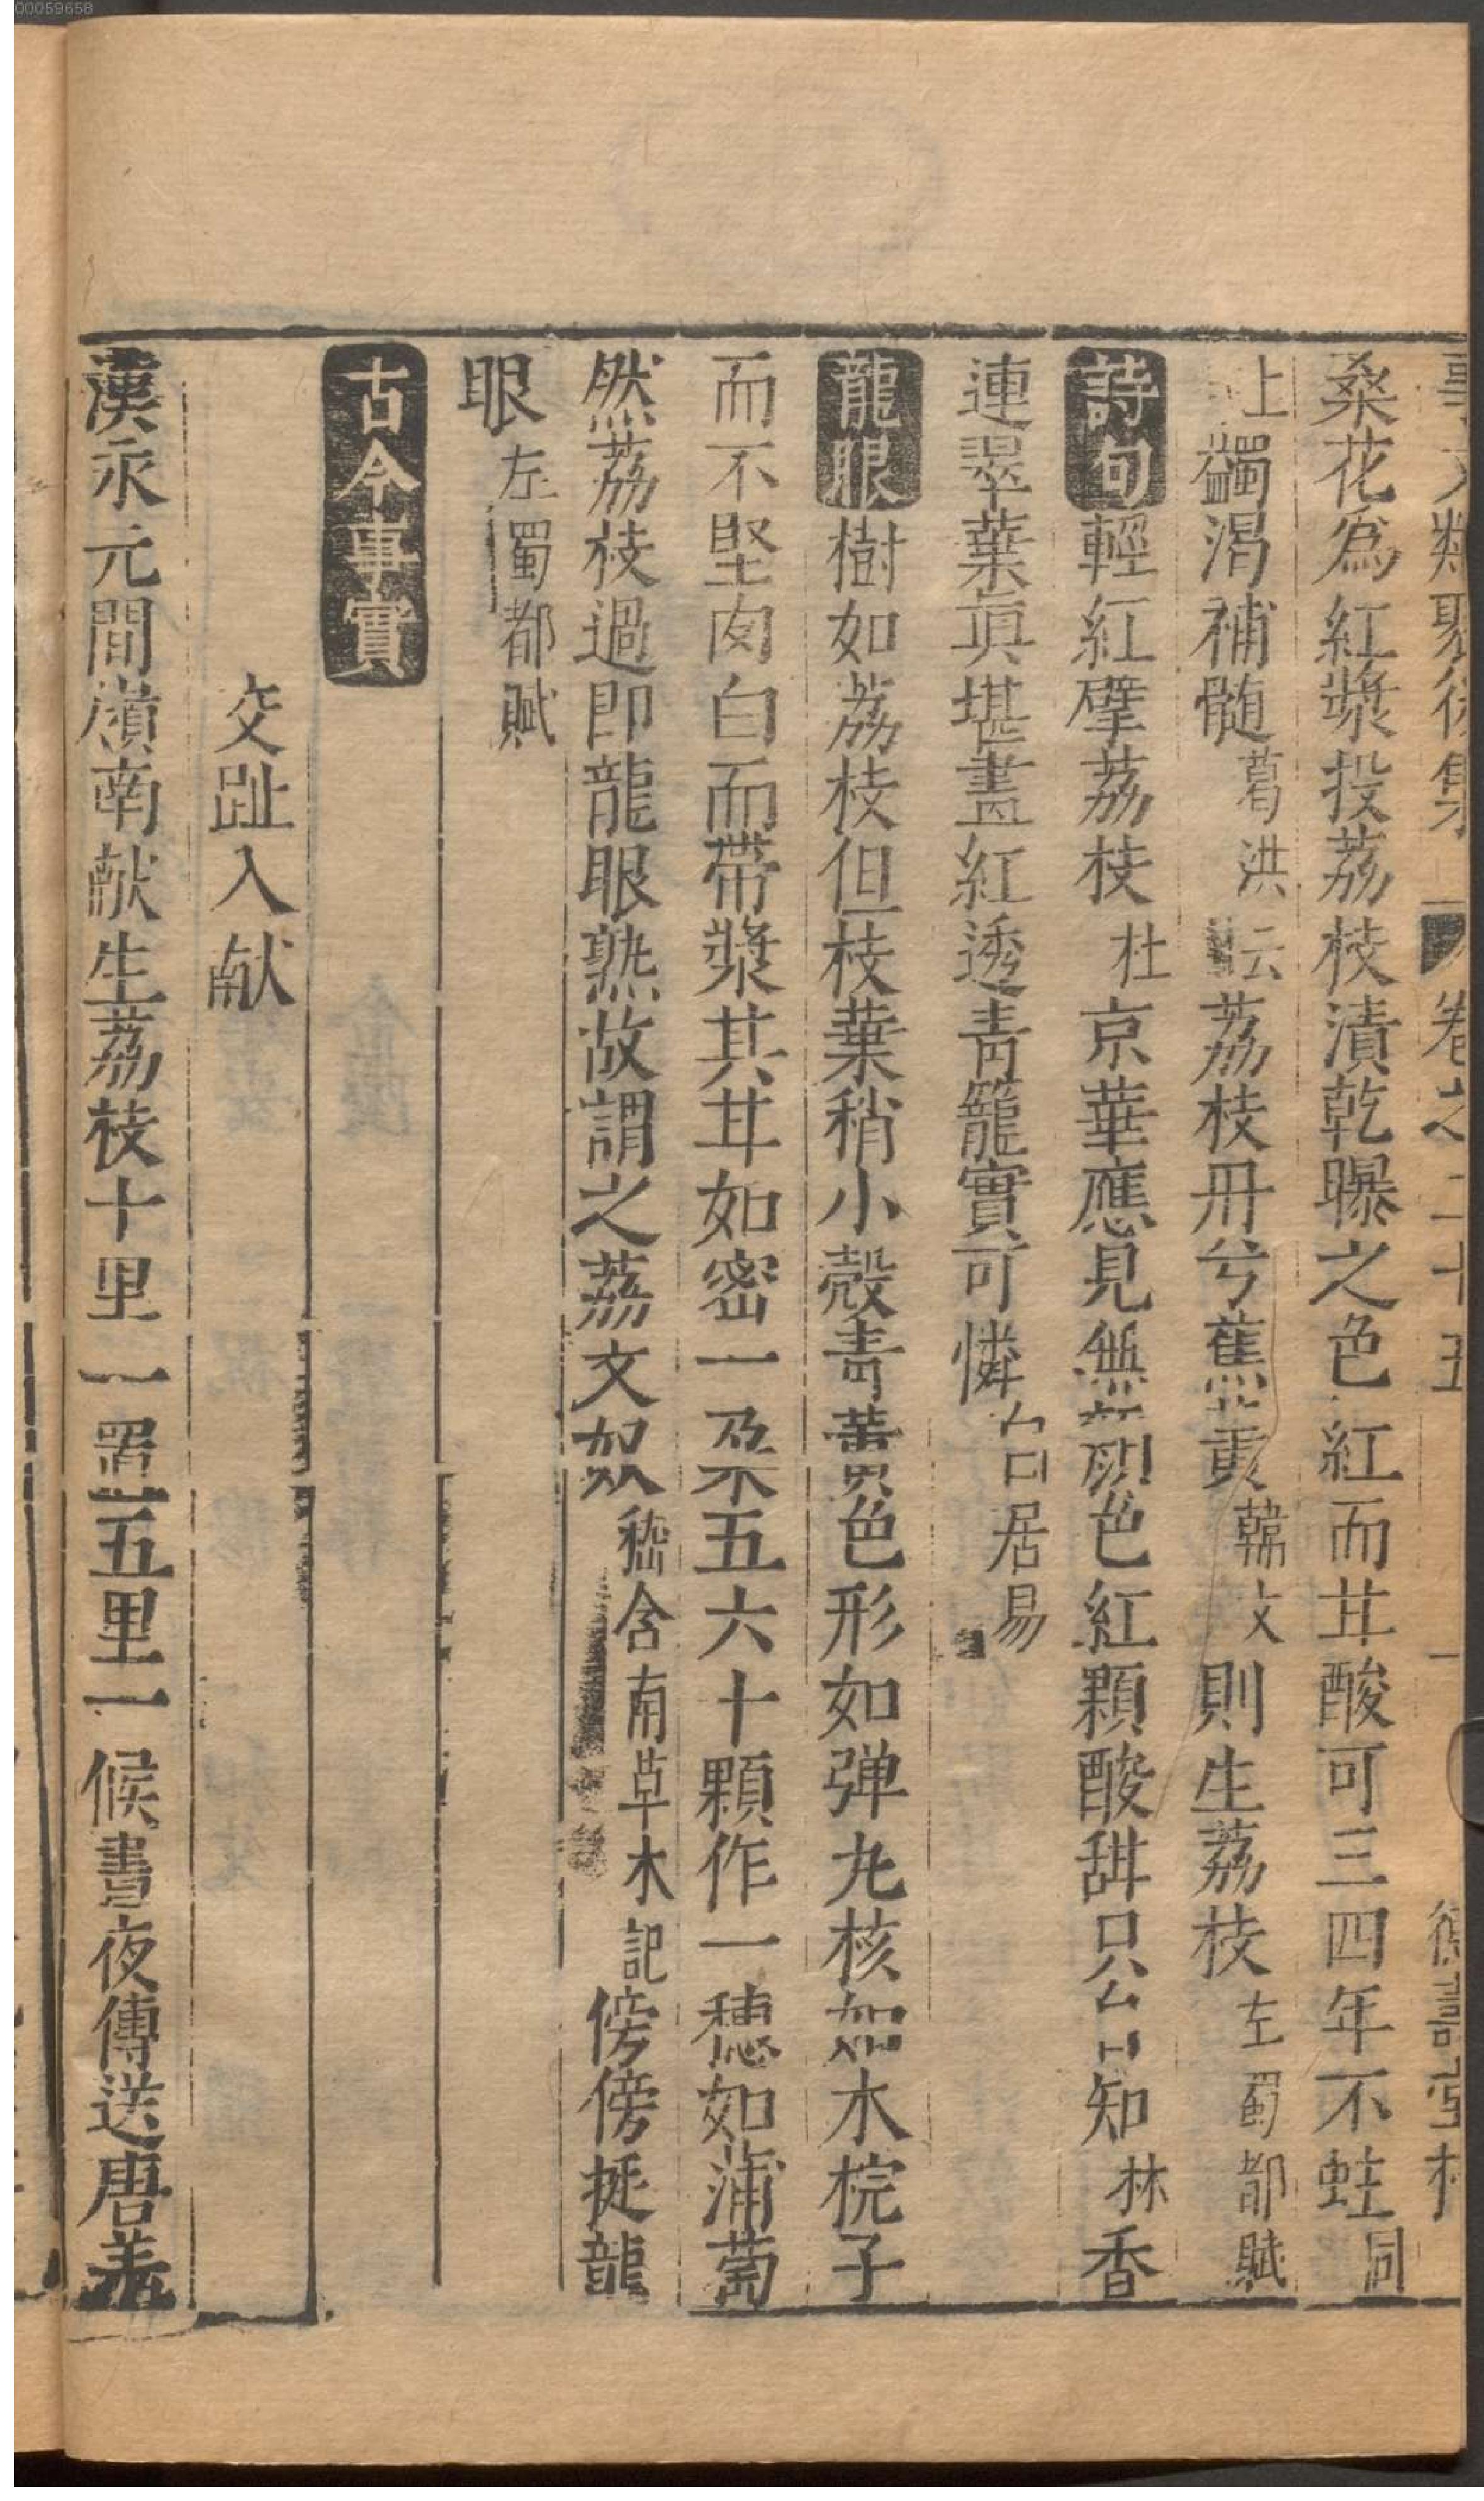 00059658
事文類聚後集 卷之二十五 德壽堂梓
桑花爲紅漿投荔枝漬乾曝之色紅而甘酸可三四年不蛀同
上蠲渴補髄葛洪云荔枝丹兮蕉黄韓文則生荔枝左蜀都賦
詩句輕紅擘荔枝杜京華應見無顔色紅顆酸甜只自知林香
連翠葉真堪畫紅透青籠實可憐白居易
龍眼樹如荔枝但枝葉稍小殼青黄色形如弹丸核如木梡子
而不堅肉白而帶漿其甘如密一朶五六十顆作一穂如蒲萄
然荔枝過即龍眼熟故謂之荔文奴嵇含南草木記傍傍挺龍
眼左蜀都賦
古今事實
交趾入献
漢永元間嶺南献生荔枝十里一置五里一候晝夜傳送唐羌